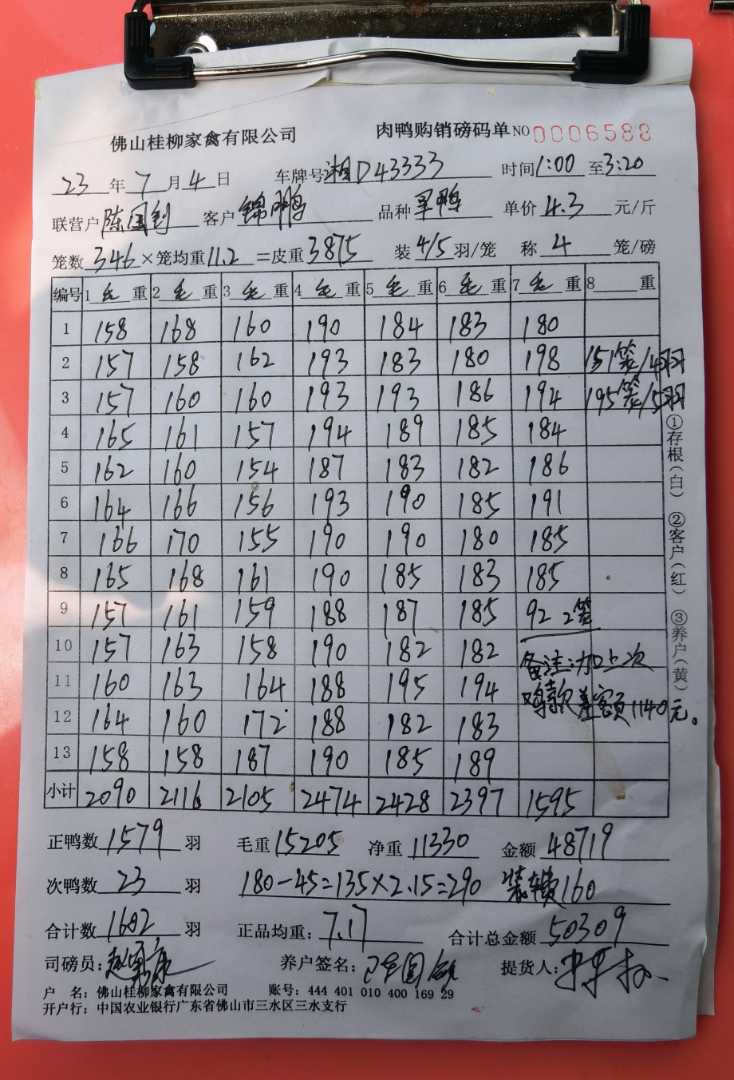 佛山桂柳家禽有限公司 肉鸭购销磅码单 NO 0006588
23 年 7 月 4 日 车牌号 湘D43333 时间 1:00 至 3:20
联营户 陈国钊 客户 锦鹏 品种 单价 4.3 元/斤
笼数 346 ×笼均重 11.2 =皮重 3875 装 4/5 羽/笼 称 4 笼/磅
编号 1 毛 重 2 毛 重 3 毛 重 4 毛 重 5 毛 重 6 毛 重 7 毛 重 8 重
1 158 168 160 190 184 183 180
2 157 158 162 193 183 180 198 151笼/4羽
3 157 160 160 193 193 186 194 195笼/5羽
4 165 161 157 194 189 185 184
5 162 160 154 187 183 182 186
6 164 166 156 193 190 185 191
7 166 170 155 190 190 180 185
8 165 168 161 190 185 183 185
9 157 161 159 188 187 185 92 2笼
10 157 163 158 190 182 182 备注:加上次
11 160 163 164 188 195 194 鸭款差额1140元。
12 164 160 172 188 182 183
13 158 158 187 190 185 189
小计 2090 2116 2105 2474 2428 2397 1595
①存根(白) ②客户(红) ③养户(黄)
正鸭数 1579 羽 毛重 15205 净重 11330 金额 48719
次鸭数 23 羽 180-45=135×2.15=290 装车费160
合计数 1602 羽 正品均重: 7.17 合计总金额 50309
司磅员: 养户签名: 提货人:
户 名: 佛山桂柳家禽有限公司 账号: 444 401 010 400 169 29
开户行: 中国农业银行广东省佛山市三水区三水支行